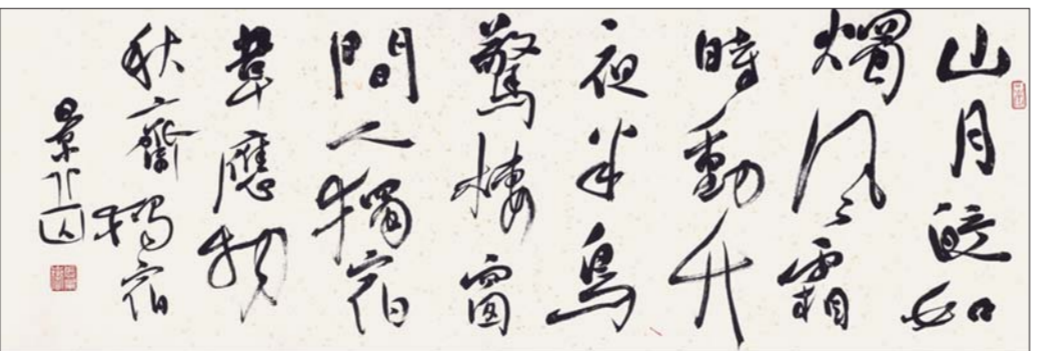 山月皎如
燭風霜
時動竹
夜半鳥
驚棲窗
間人獨宿
韋應物
秋齋獨宿
景